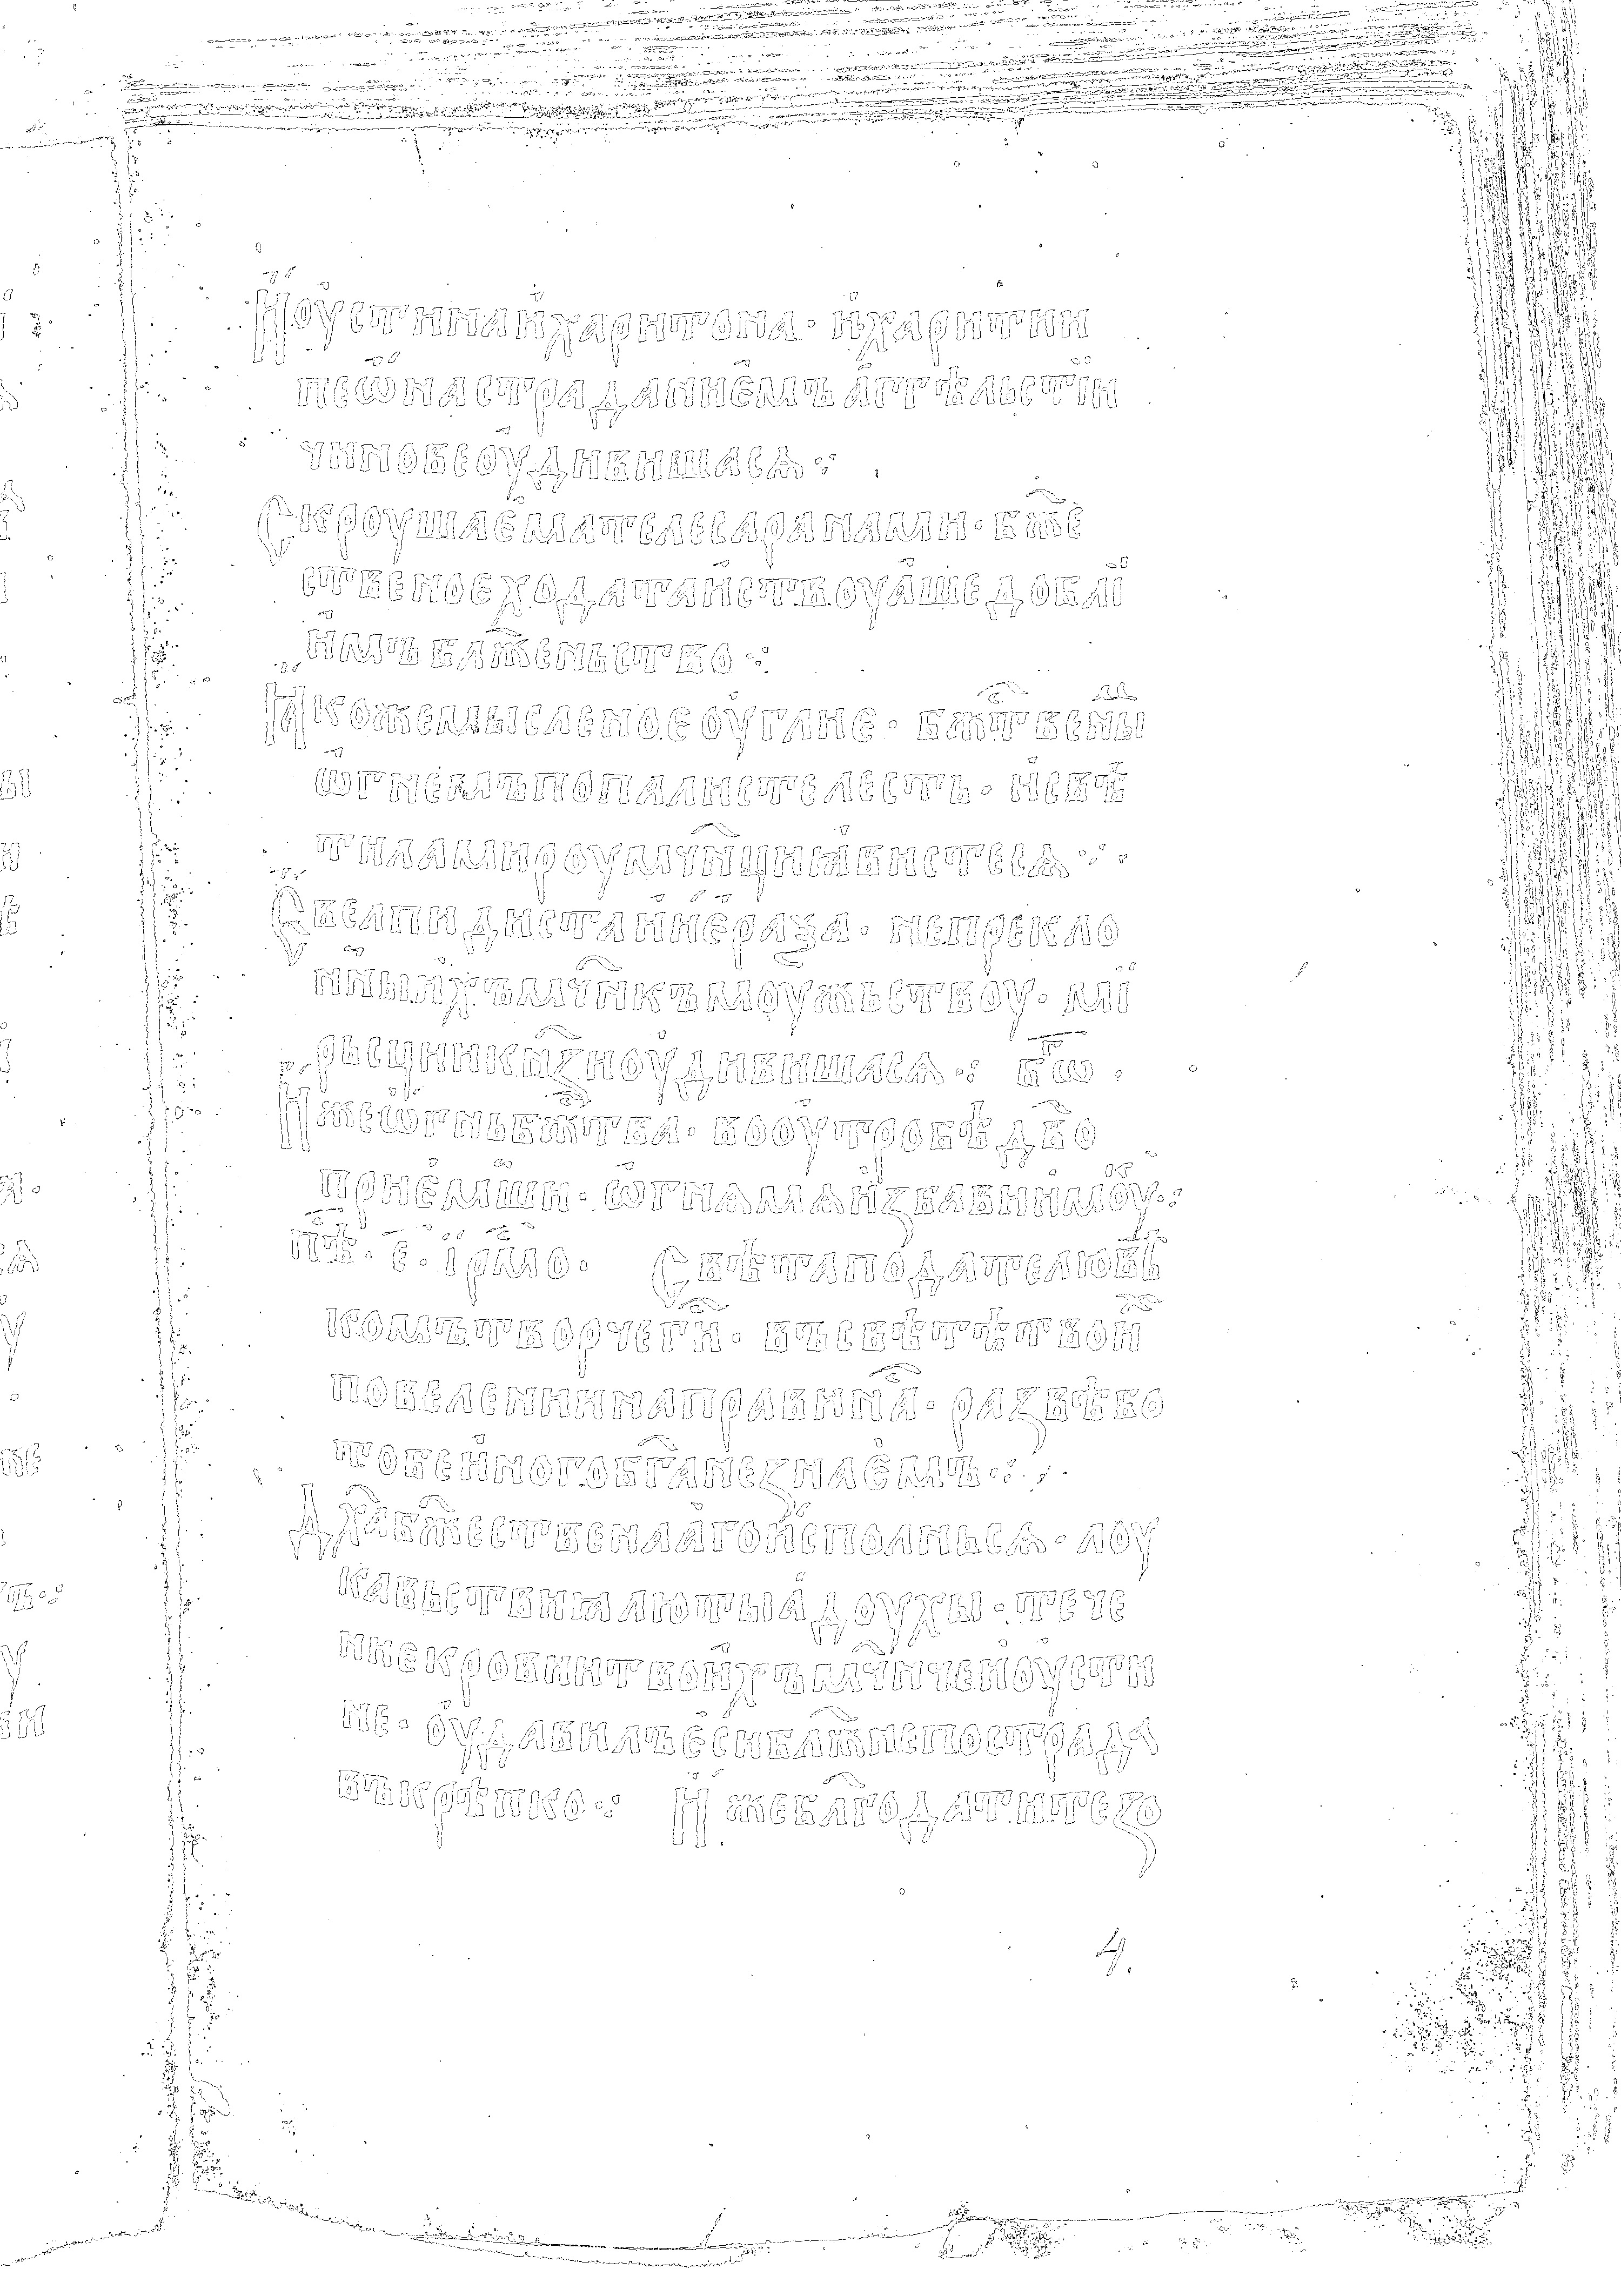 Иоустинаихаритона· ихаритни
пеѡнастраданиемъ аггѣльстїи
чиновеоудивишасѧ⁘
Скроушаематѣлесаранами· бж҃е
ственоеходатаиствоуашедоблї
имъ блж҃еньство⁘
Ꙗкожемысленоеоуглие· бж҃твены
ѡгнемъпопалистелесть· исвѣ
тиламироумч҃нциꙗвистесѧ⁘
Свелпидистаниераза· непрекло
нныихъмч҃нкъмоужьствоу· мї
рьсциикнѧ҃зиоудивишасѧ⁘ бг҃ѡ·
Ижеѡгньбж҃тва· вооутробѣдв҃о
приемши· ѡгнѧмѧизбавиимоу⁘
пѣ· е҃· їрмо· Свѣтаподателювѣ
комътворчеги· въсвѣтѣтвои
повелениинаправина҃· развѣво
тобеиногобг҃анезнаемъ⁘
Дх҃абж҃ественаагоисполньсѧ· лоу
кавьствиꙗлютыадоухы· тече
ниекровиитвоихъмч҃ничеиоусти
не· оудавилъесиблж҃непострада
въкрѣпко⁘ Ижеблг҃одатитезо
4.